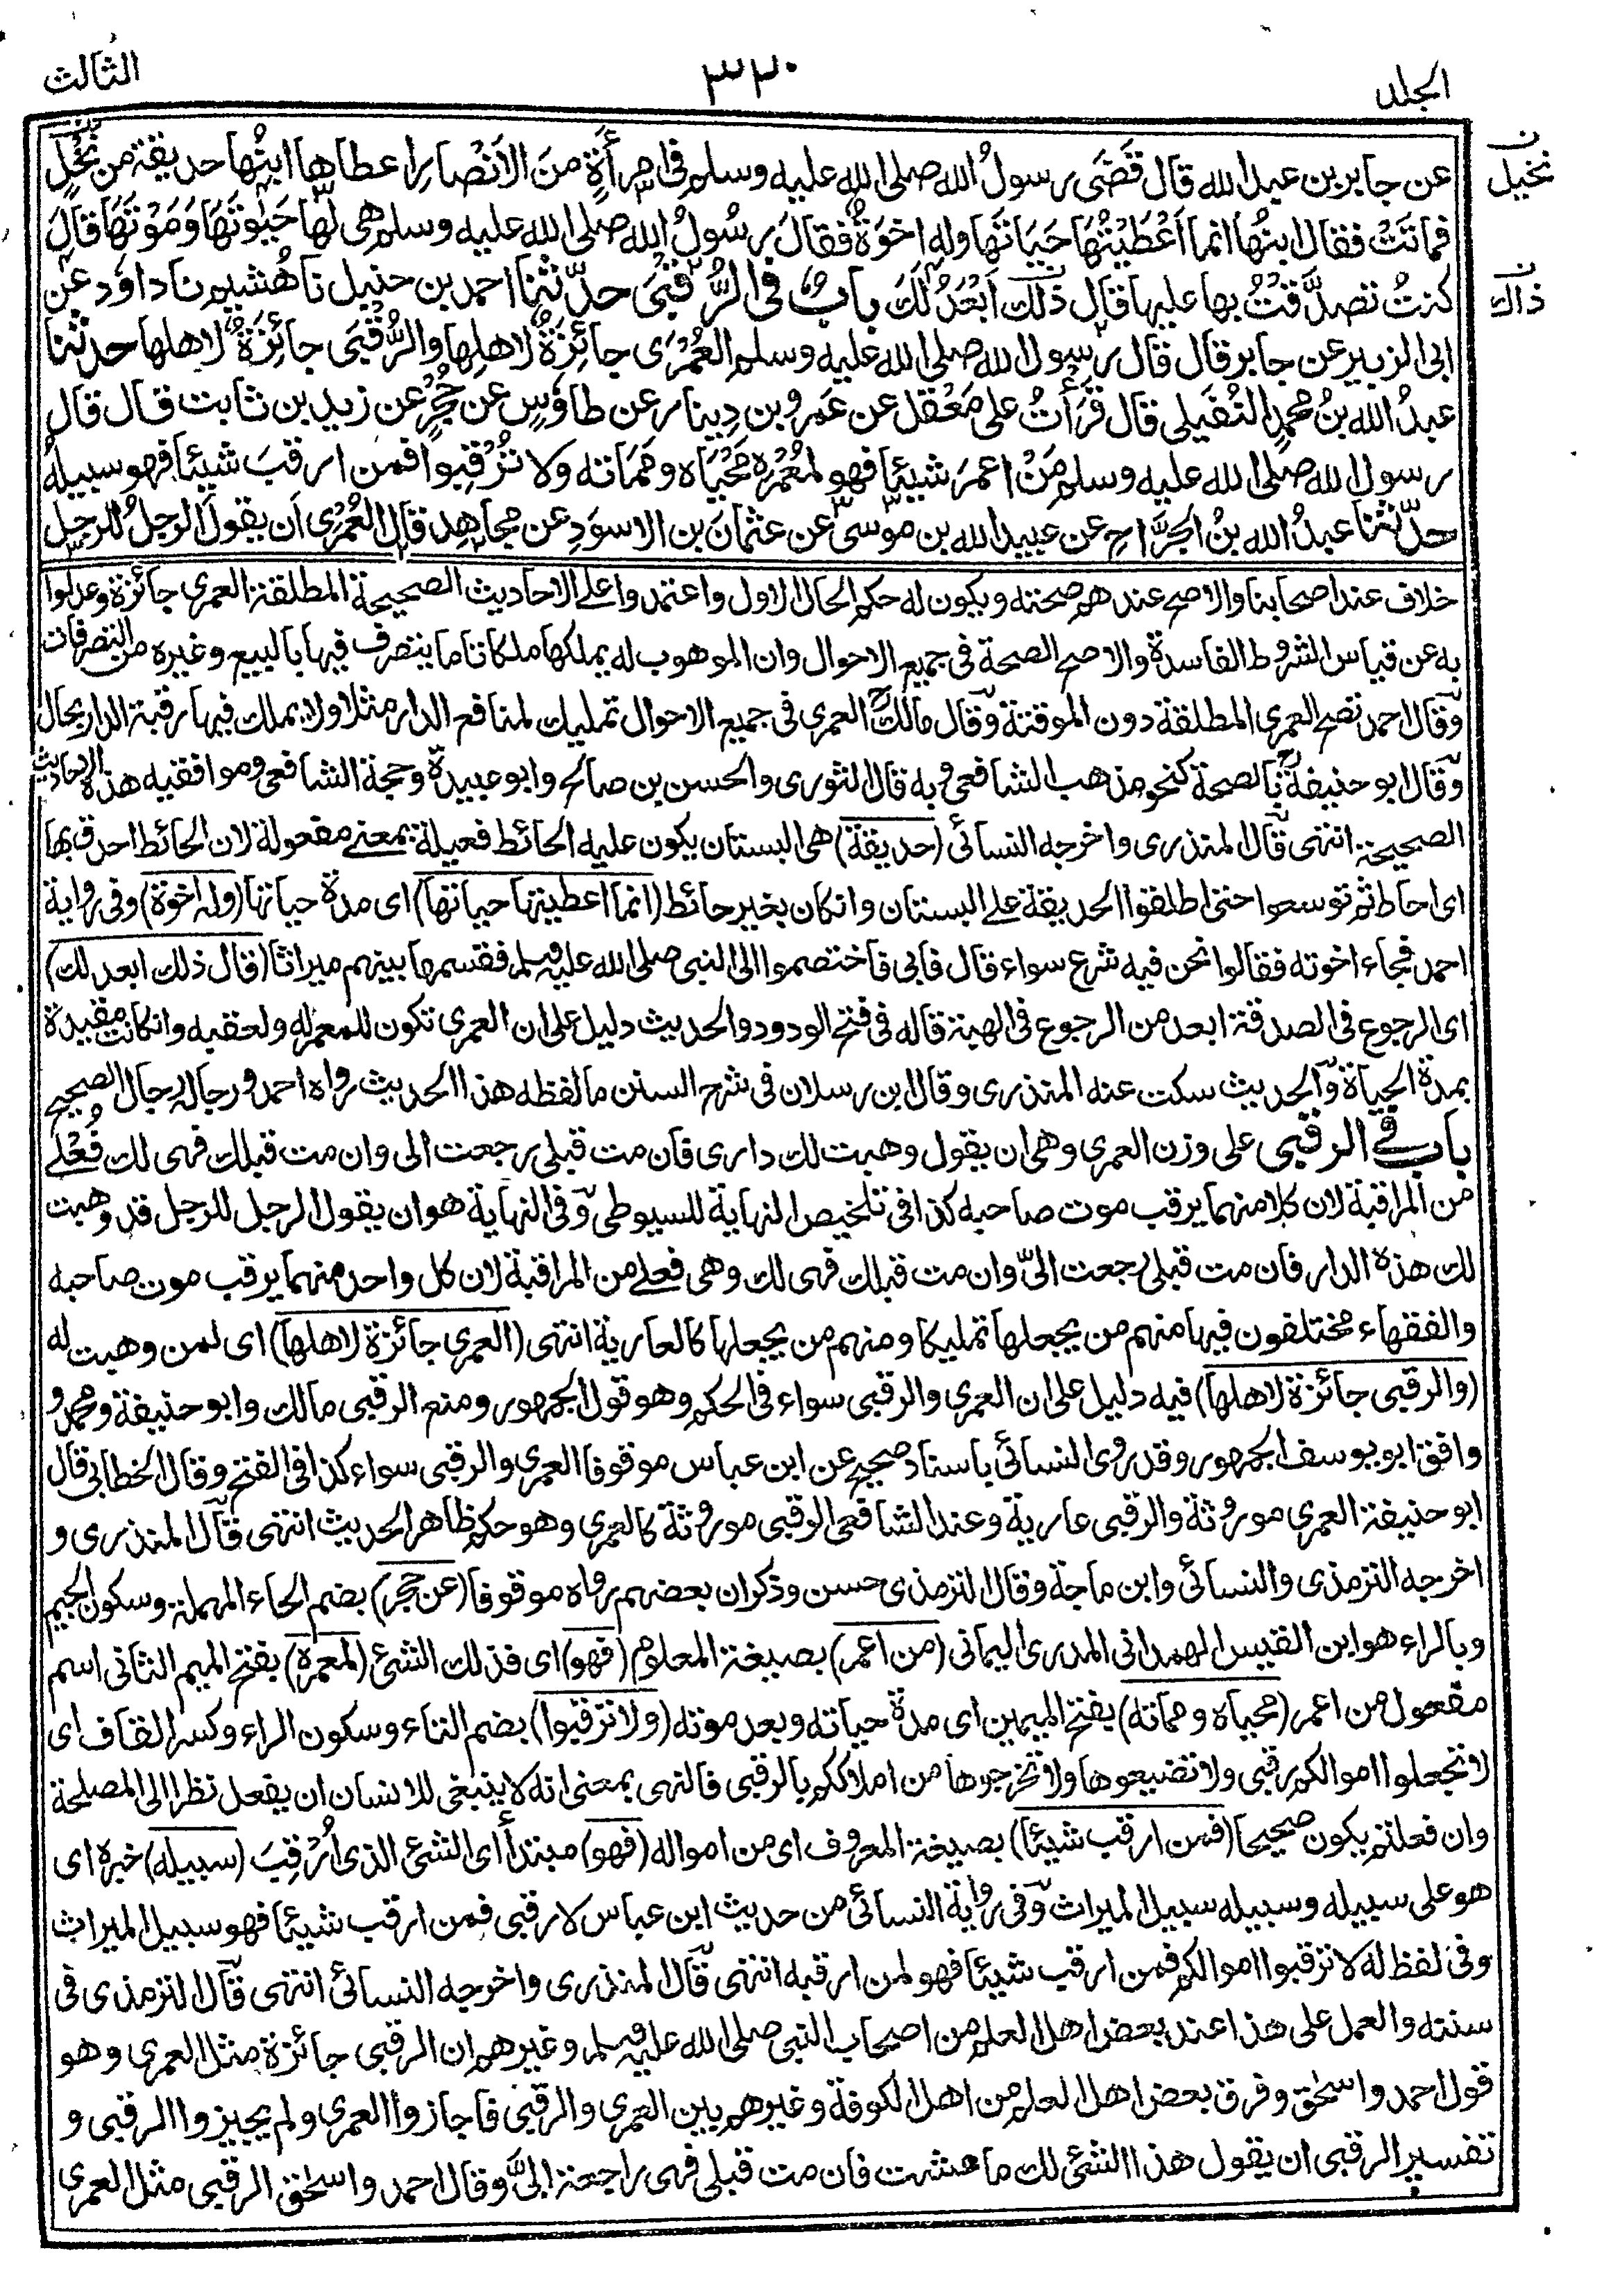 الجلد
٣٢٠
الثالث
عن جابر بن عبد الله قال قَضَى رسولُ الله صلى الله عليه وسلم فى امرأَةٍ مِنَ الاَنْصَارِ اعطاها ابنُها حديقة من نَخْلٍ
نخيل
فماتَتْ فقال ابنُها انما اَعْطَيْتُهَا حَيَاتَها وله اخوَةٌ فقال رسُولُ الله صلى الله عليه وسلم هى لَهَا حَيٰوتَهَا وَمَوْتَهَا قالَ
كنتُ تَصدَّقْتُ بها عليها قال ذٰلك اَبْعَدُ لَكَ باب فى الرُّقْبَى حدّثنا احمد بن حنبل نا هُشَيم نا داوٗد عن
ذاك
ابى الزبير عن جابر قال قال رسول الله صلى الله عليه وسلم العُمْرٰى جائِزَةٌ لاهلِها والرُّقْبَى جائِزَةٌ لاهلها حدثنا
عبدُ الله بنُ محمدٍ النُّفَيلى قال قَرَأتُ على مَعْقل عن عَمرو بن دِينار عن طاؤسٍ عن حُجْرٍ عن زيد بن ثابت قال قال
رسول الله صلى الله عليه وسلم مَنْ اعمرَ شيئا فهو لمُعْمَرِهٖ مَحْيَاه ومَمَاته ولا تُرْقِبوا فمن ارقبَ شيئا فهو سبيلهُ
حدّثنا عبدُ الله بنُ الجَرَّاحِ عن عبيد الله بن موسىٰ عن عثمانَ بن الاسوَدِ عن مجاهِد قال العُمْرٰى اَن يقولَ الرجلُ للرجلِ
خلاف عند اصحابنا والاصح عندهم صحته ويكون له حكم الحال الاول واعتمدوا على الاحاديث الصحيحة المطلقة العمرى جائزة وعدلوا
به عن قياس الشروط الفاسدة والاصح الصحة فى جميع الاحوال وان الموهوب له يملكها ملكا تاما يتصرف فيها بالبيع وغيره من التصرفات
وقال احمد تصح العمرى المطلقة دون الموقتة وقال مالك العمرى فى جميع الاحوال تمليك لمنافع الدار مثلا ولا يملك فيها رقبة الدار بحال
وقال ابو حنيفة بالصحة كنحو مذهب الشافعى وبه قال الثورى والحسن بن صالح وابو عبيدة وحجة الشافعى وموافقيه هذه الاحاديث
الصحيحة انتهى قال المنذرى واخرجه النسائى (حديقة) هى البستان يكون عليه الحائط فعيلة بمعنى مفعولة لان الحائط احدق بها
اى احاط ثم توسعوا حتى اطلقوا الحديقة على البستان وان كان بغير حائط (انما اعطيتها حياتها) اى مدة حياتها (وله اخوة) وفى رواية
احمد فجاء اخوته فقالوا نحن فيه شرع سواء قال فابى فاختصموا الى النبى صلى الله عليه وسلم فقسمها بينهم ميراثا (قال ذلك ابعد لك)
اى الرجوع فى الصدقة ابعد من الرجوع فى الهبة قاله فى فتح الودود والحديث دليل على ان العمرى تكون للمعمر له ولعقبه وان كانت مقيدة
بمدة الحياة والحديث سكت عنه المنذرى وقال ابن رسلان فى شرح السنن ما لفظه هذا الحديث رواه احمد ورجاله رجال الصحيح
باب فى الرقبى على وزن العمرى وهى ان يقول وهبت لك دارى فان مت قبلى رجعت الى وان مت قبلك فهى لك فُعْلى
من المراقبة لان كلا منهما يرقب موت صاحبه كذا فى تلخيص النهاية للسيوطى وفى النهاية هو ان يقول الرجل للرجل قد وهبت
لك هذه الدار فان مت قبلى رجعت الىّ وان مت قبلك فهى لك وهى فعلى من المراقبة لان كل واحد منهما يرقب موت صاحبه
والفقهاء مختلفون فيها منهم من يجعلها تمليكا ومنهم من يجعلها كالعارية انتهى (العمرى جائزة لاهلها) اى لمن وهبت له
(والرقبى جائزة لاهلها) فيه دليل على ان العمرى والرقبى سواء فى الحكم وهو قول الجمهور ومنع الرقبى مالك وابو حنيفة ومحمد و
وافق ابو يوسف الجمهور وقد روى النسائى باسناد صحيح عن ابن عباس موقوفا العمرى والرقبى سواء كذا فى الفتح وقال الخطابى قال
ابو حنيفة العمرى موروثة والرقبى عارية وعند الشافعى الرقبى موروثة كالعمرى وهو حكم ظاهر الحديث انتهى قال المنذرى و
اخرجه الترمذى والنسائى وابن ماجة وقال الترمذى حسن وذكر ان بعضهم رواه موقوفا (عن حجر) بضم الحاء المهملة وسكون الجيم
وبالراء هو ابن القيس الهمدانى المدرى اليمانى (من اعمر) بصيغة المعلوم (فهو) اى فذلك الشئ (لمعمره) بفتح الميم الثانى اسم
مفعول من اعمر (محياه ومماته) بفتح الميمين اى مدة حياته وبعد موته (ولا ترقبوا) بضم التاء وسكون الراء وكسر القاف اى
لا تجعلوا اموالكم رقبى ولا تضيعوها ولا تخرجوها من املاككم بالرقبى فالنهى بمعنى انه لا ينبغى للانسان ان يفعل نظرا الى المصلحة
وان فعلتم يكون صحيحا (فمن ارقب شيئا) بصيغة المعروف اى من امواله (فهو) مبتدأ اى الشئ الذى اُرْقِبَ (سبيله) خبره اى
هو على سبيله وسبيله سبيل الميراث وفى رواية النسائى من حديث ابن عباس لا رقبى فمن ارقب شيئا فهو سبيل الميراث
وفى لفظ له لا ترقبوا اموالكم فمن ارقب شيئا فهو لمن ارقبه انتهى قال المنذرى واخرجه النسائى انتهى قال الترمذى فى
سننه والعمل على هذا عند بعض اهل العلم من اصحاب النبى صلى الله عليه وسلم وغيرهم ان الرقبى جائزة مثل العمرى وهو
قول احمد واسحٰق وفرق بعض اهل العلم من اهل الكوفة وغيرهم بين العمرى والرقبى فاجازوا العمرى ولم يجيزوا الرقبى و
تفسير الرقبى ان يقول هذا الشئى لك ما عشت فان مت قبلى فهى راجعة الىَّ وقال احمد واسحٰق الرقبى مثل العمرى